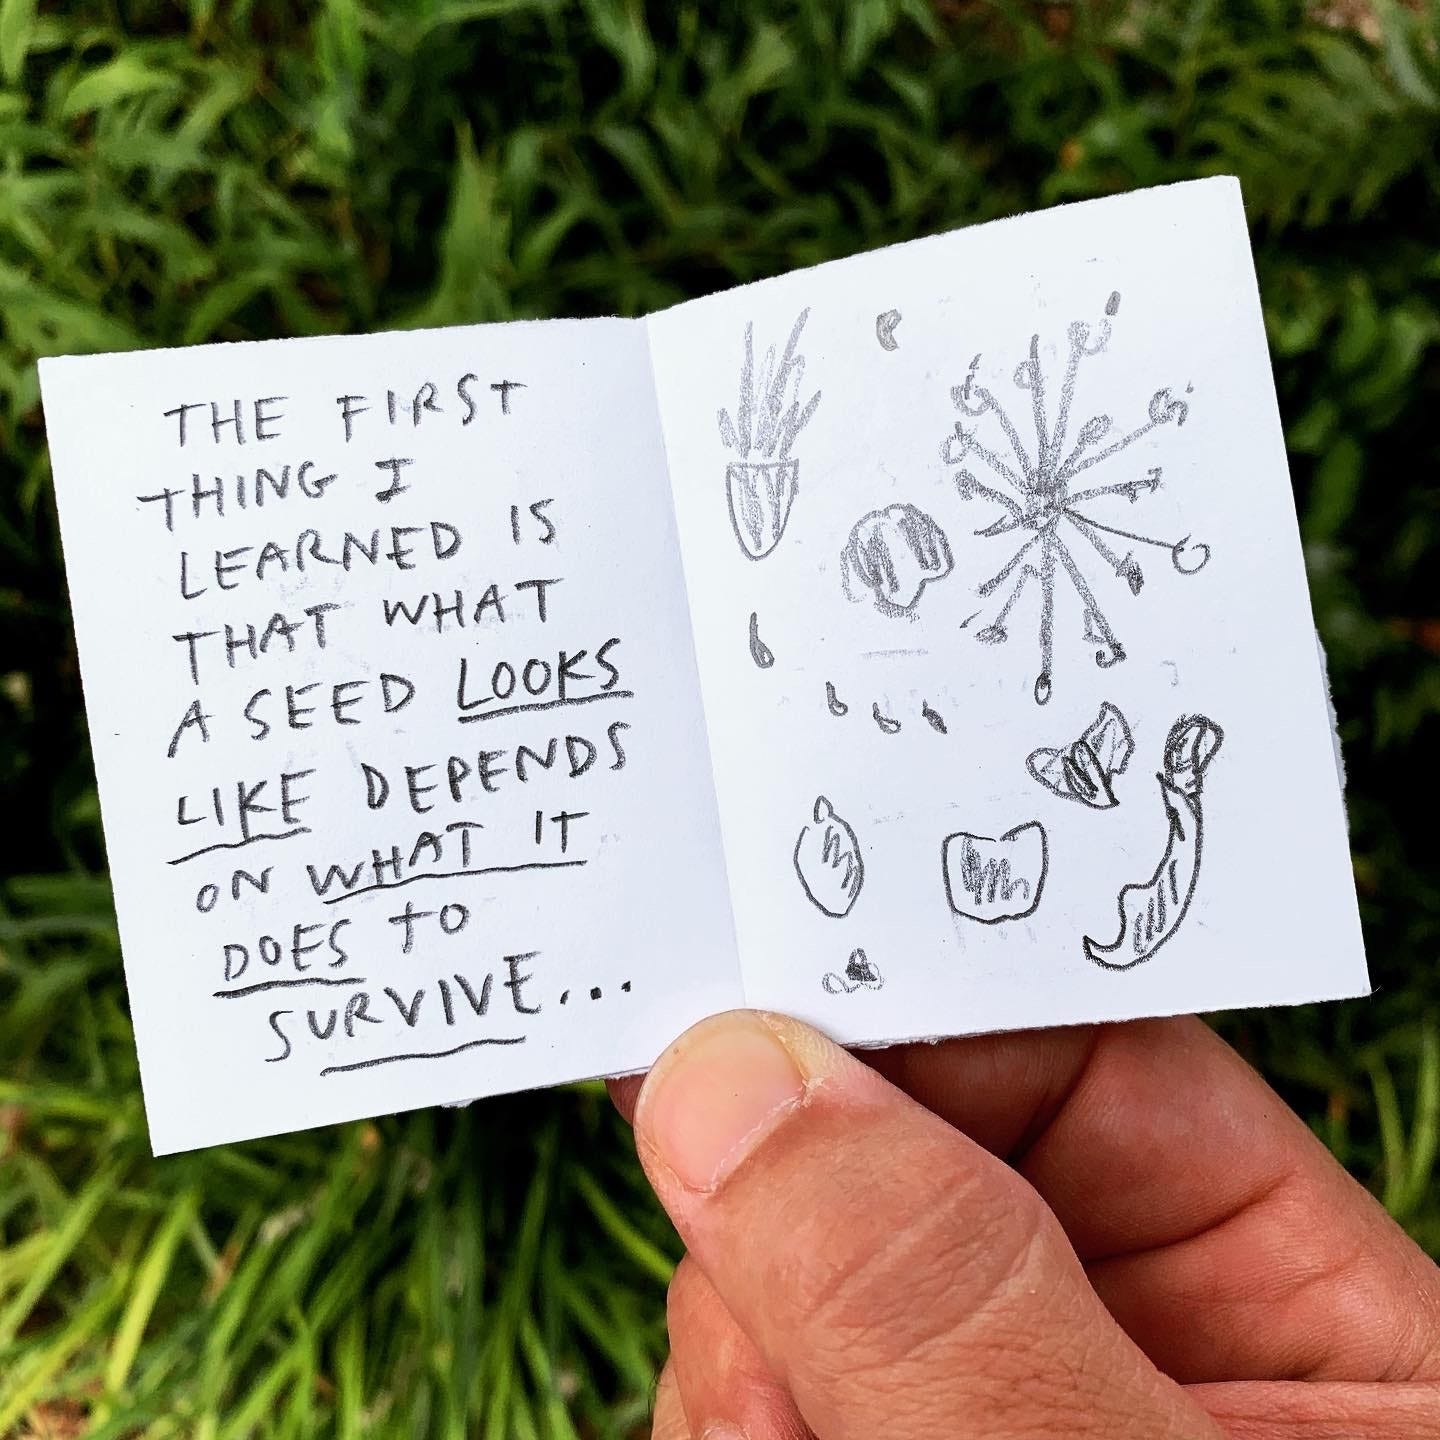 THE FIRST
THING I
LEARNED IS
THAT WHAT
A SEED LOOKS
LIKE DEPENDS
ON WHAT IT
DOES TO
SURVIVE...